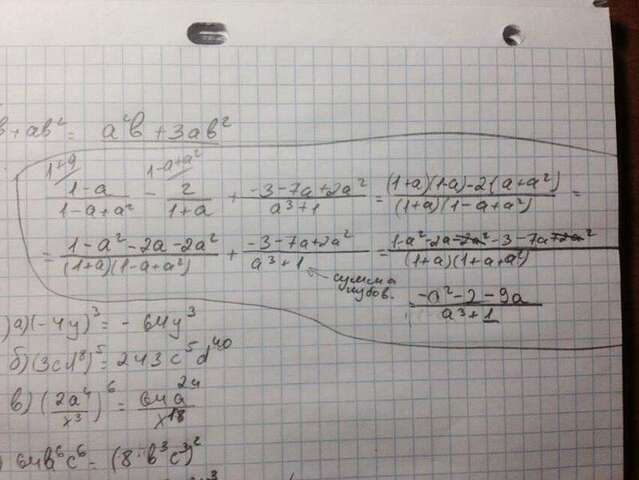 b+ab² = a²b + 3ab²
1+a 1-a+a²
(1-a)/(1-a+a²) - 2/(1+a) + (-3-7a+2a²)/(a³+1) = ((1+a)(1-a)-2(a+a²))/((1+a)(1-a+a²)) =
= (1-a²-2a-2a²)/((1+a)(1-a+a²)) + (-3-7a+2a²)/(a³+1) = (1-a²-2a-2a²-3-7a+2a²)/((1+a)(1+a+a²))
сумма
кубов.
= (-a²-2-9a)/(a³+1)
)а)(-4y)³ = -64y³
б)(3cd⁸)⁵ = 243c⁵d⁴⁰
в)(2a⁴/x³)⁶ = 64a²⁴/x¹⁸
) 64b⁶c⁶ = (8·b³c³)²